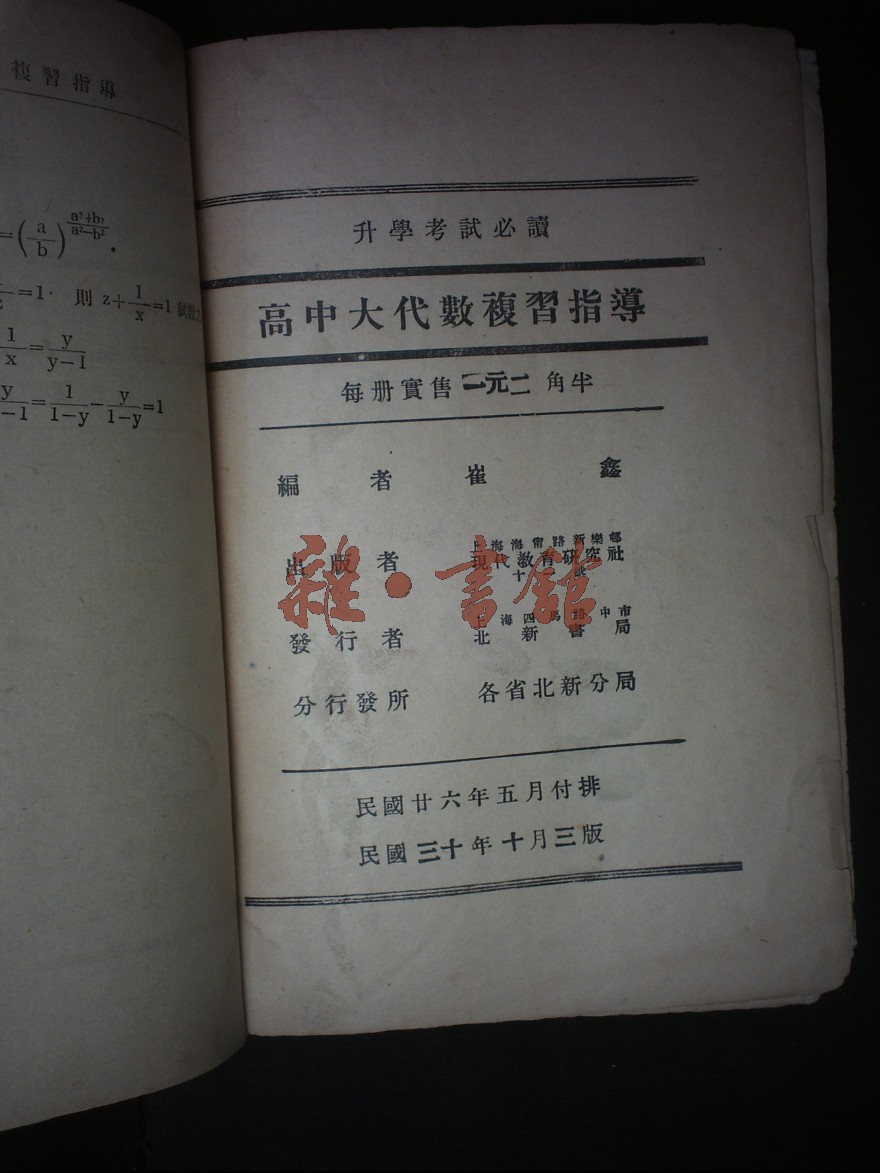 複習指導
=(a/b)^{(a²+b²)/(a²-b²)}.
=1. 則 z+1/x=1 試證之
1/x=y/(y-1)
=1/(1-y)-y/(1-y)=1
升學考試必讀
高中大代數複習指導
每册實售二元二角半
編者 崔鑫
上海海甯路新樂邨
出版者 現代教育研究社
上海四馬路中市
發行者 北新書局
分行發所 各省北新分局
民國廿六年五月付排
民國三十年十月三版
雜·書館